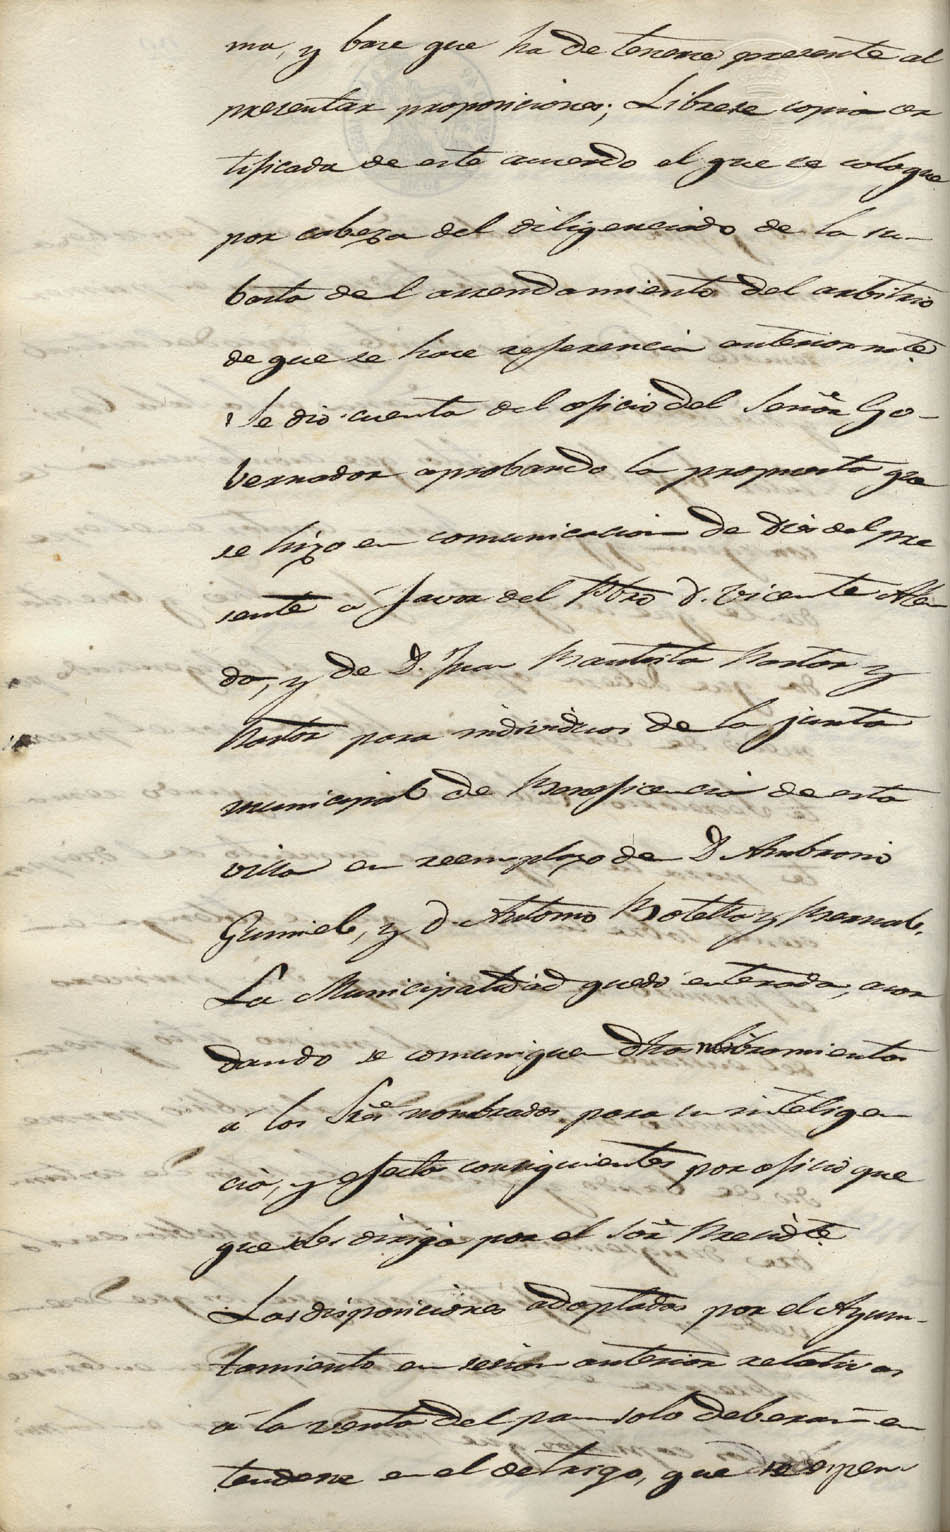 ma, y base que ha de tenerse presente al
presentar proposiciones; Librese copia cer
tificada de este acuerdo el que se coloque
por cabeza del diligenciado de la su-
basta del arrendamiento del arbitrio
de que se hace referencia anteriormte.
Se dió cuenta del oficio del Señor Go-
bernador aprobando la propuesta que
se hizo en comunicacion de diez del pre
sente á favor del Pbro. D. Vicente
da, y de D. Juan Bautista Pastor y
Pastor para individuos de la junta
municipal de Beneficencia de esta
villa en reemplazo de D Ambrosio
Gumiel, y D. Antonio Botella y Bernab.
La Municipalidad quedó enterada, acor
dando se comunique dhos nombramientos
á los Sres nombrados para su inteligen
cia, y efectos consiguientes por oficio que
que les dirija por el Sor. Presidte.
Las disposiciones adoptadas por el Ayun-
tamiento en sesion anterior relativas
á la venta del pan solo deberan en
tenderse en el de trigo, que se espen-